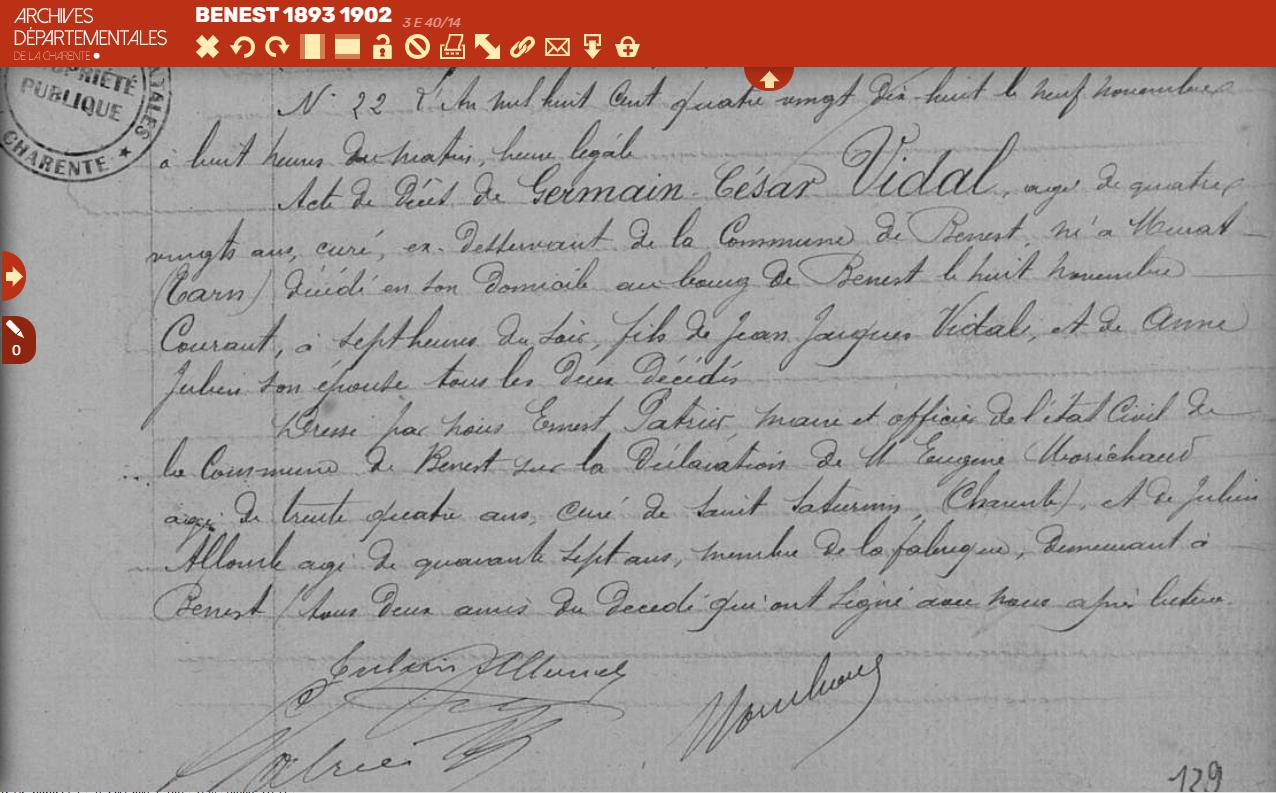 ARCHIVES
DÉPARTEMENTALES
DE LA CHARENTE
BENEST 1893 1902 3 E 40/14
PROPRIÉTÉ
PUBLIQUE
CHARENTE
N° 22 L'An mil huit cent quatre vingt dix-huit le neuf novembre
à huit heures du matin, heure légale
Acte de Décès de Germain-César Vidal, agé de quatre
vingts ans, curé, ex-desservant de la Commune de Benest, né à Murat
(Tarn) décédé en son domicile au bourg de Benest le huit novembre
Courant, à sept heures du soir, fils de Jean Jacques Vidal, et de Anne
Julien son épouse tous les deux décédés
Dressé par nous Ernest Patrier maire et officier de l'état Civil de
la Commune de Benest sur la Déclaration de M Eugène Morichaud
agé de trente quatre ans, curé de Saint Saturnin, (Charente), et de Julien
Allourle agé de quarante sept ans, membre de la fabrique, demeurant à
Benest / tous deux amis du decedé qui ont signé avec nous après lecture.
Patrier
129
0